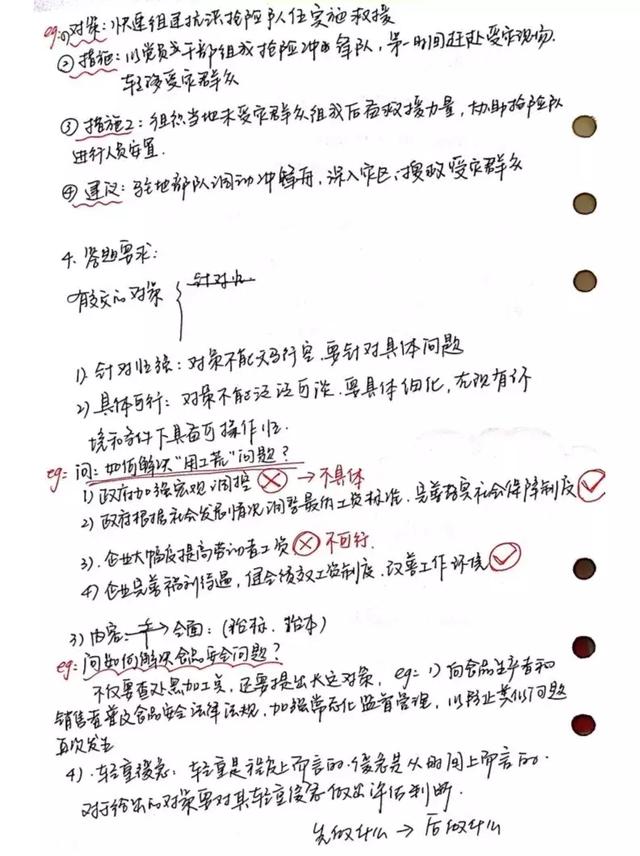 eg: ①对策：快速组建抗洪抢险队伍实施救援
②措施1：以党员干部组成抢险冲锋队，第一时间赶赴受灾现场.
转移受灾群众
③措施2：组织当地未受灾群众组成后备救援力量，协助抢险队
进行人员安置.
④建议：驻地部队调动冲锋舟，深入灾区，搜救受灾群众
4. 答题要求：
有效的对策 {
针对性
1) 针对性强：对策不能天马行空.要针对具体问题
2) 具体可行：对策不能泛泛而谈.要具体细化，在现有的
环境和条件下具备可操作性.
eg: 问：如何解决"用工荒"问题？
1) 政府加强宏观调控 ⊗ → 不具体
2) 政府根据社会发展情况调整最低工资标准.完善落实社会保障制度
3). 企业大幅度提高劳动者工资 ⊗ 不可行.
4) 企业完善福利待遇，健全绩效工资制度.改善工作环境
3) 内容 全面：(治标、治本)
eg: 问如何解决食品安全问题？
不仅要查处黑加工窝，还要提出长远对策，eg: 1) 向食品生产者和
销售者普及食品安全法律法规，加强常态化监督管理，以防止类似问题
再次发生
4). 轻重缓急：轻重是程度上而言的.缓急是从时间上而言的.
对于给出的对策要对其轻重缓急做出评估判断.
先做什么 → 后做什么